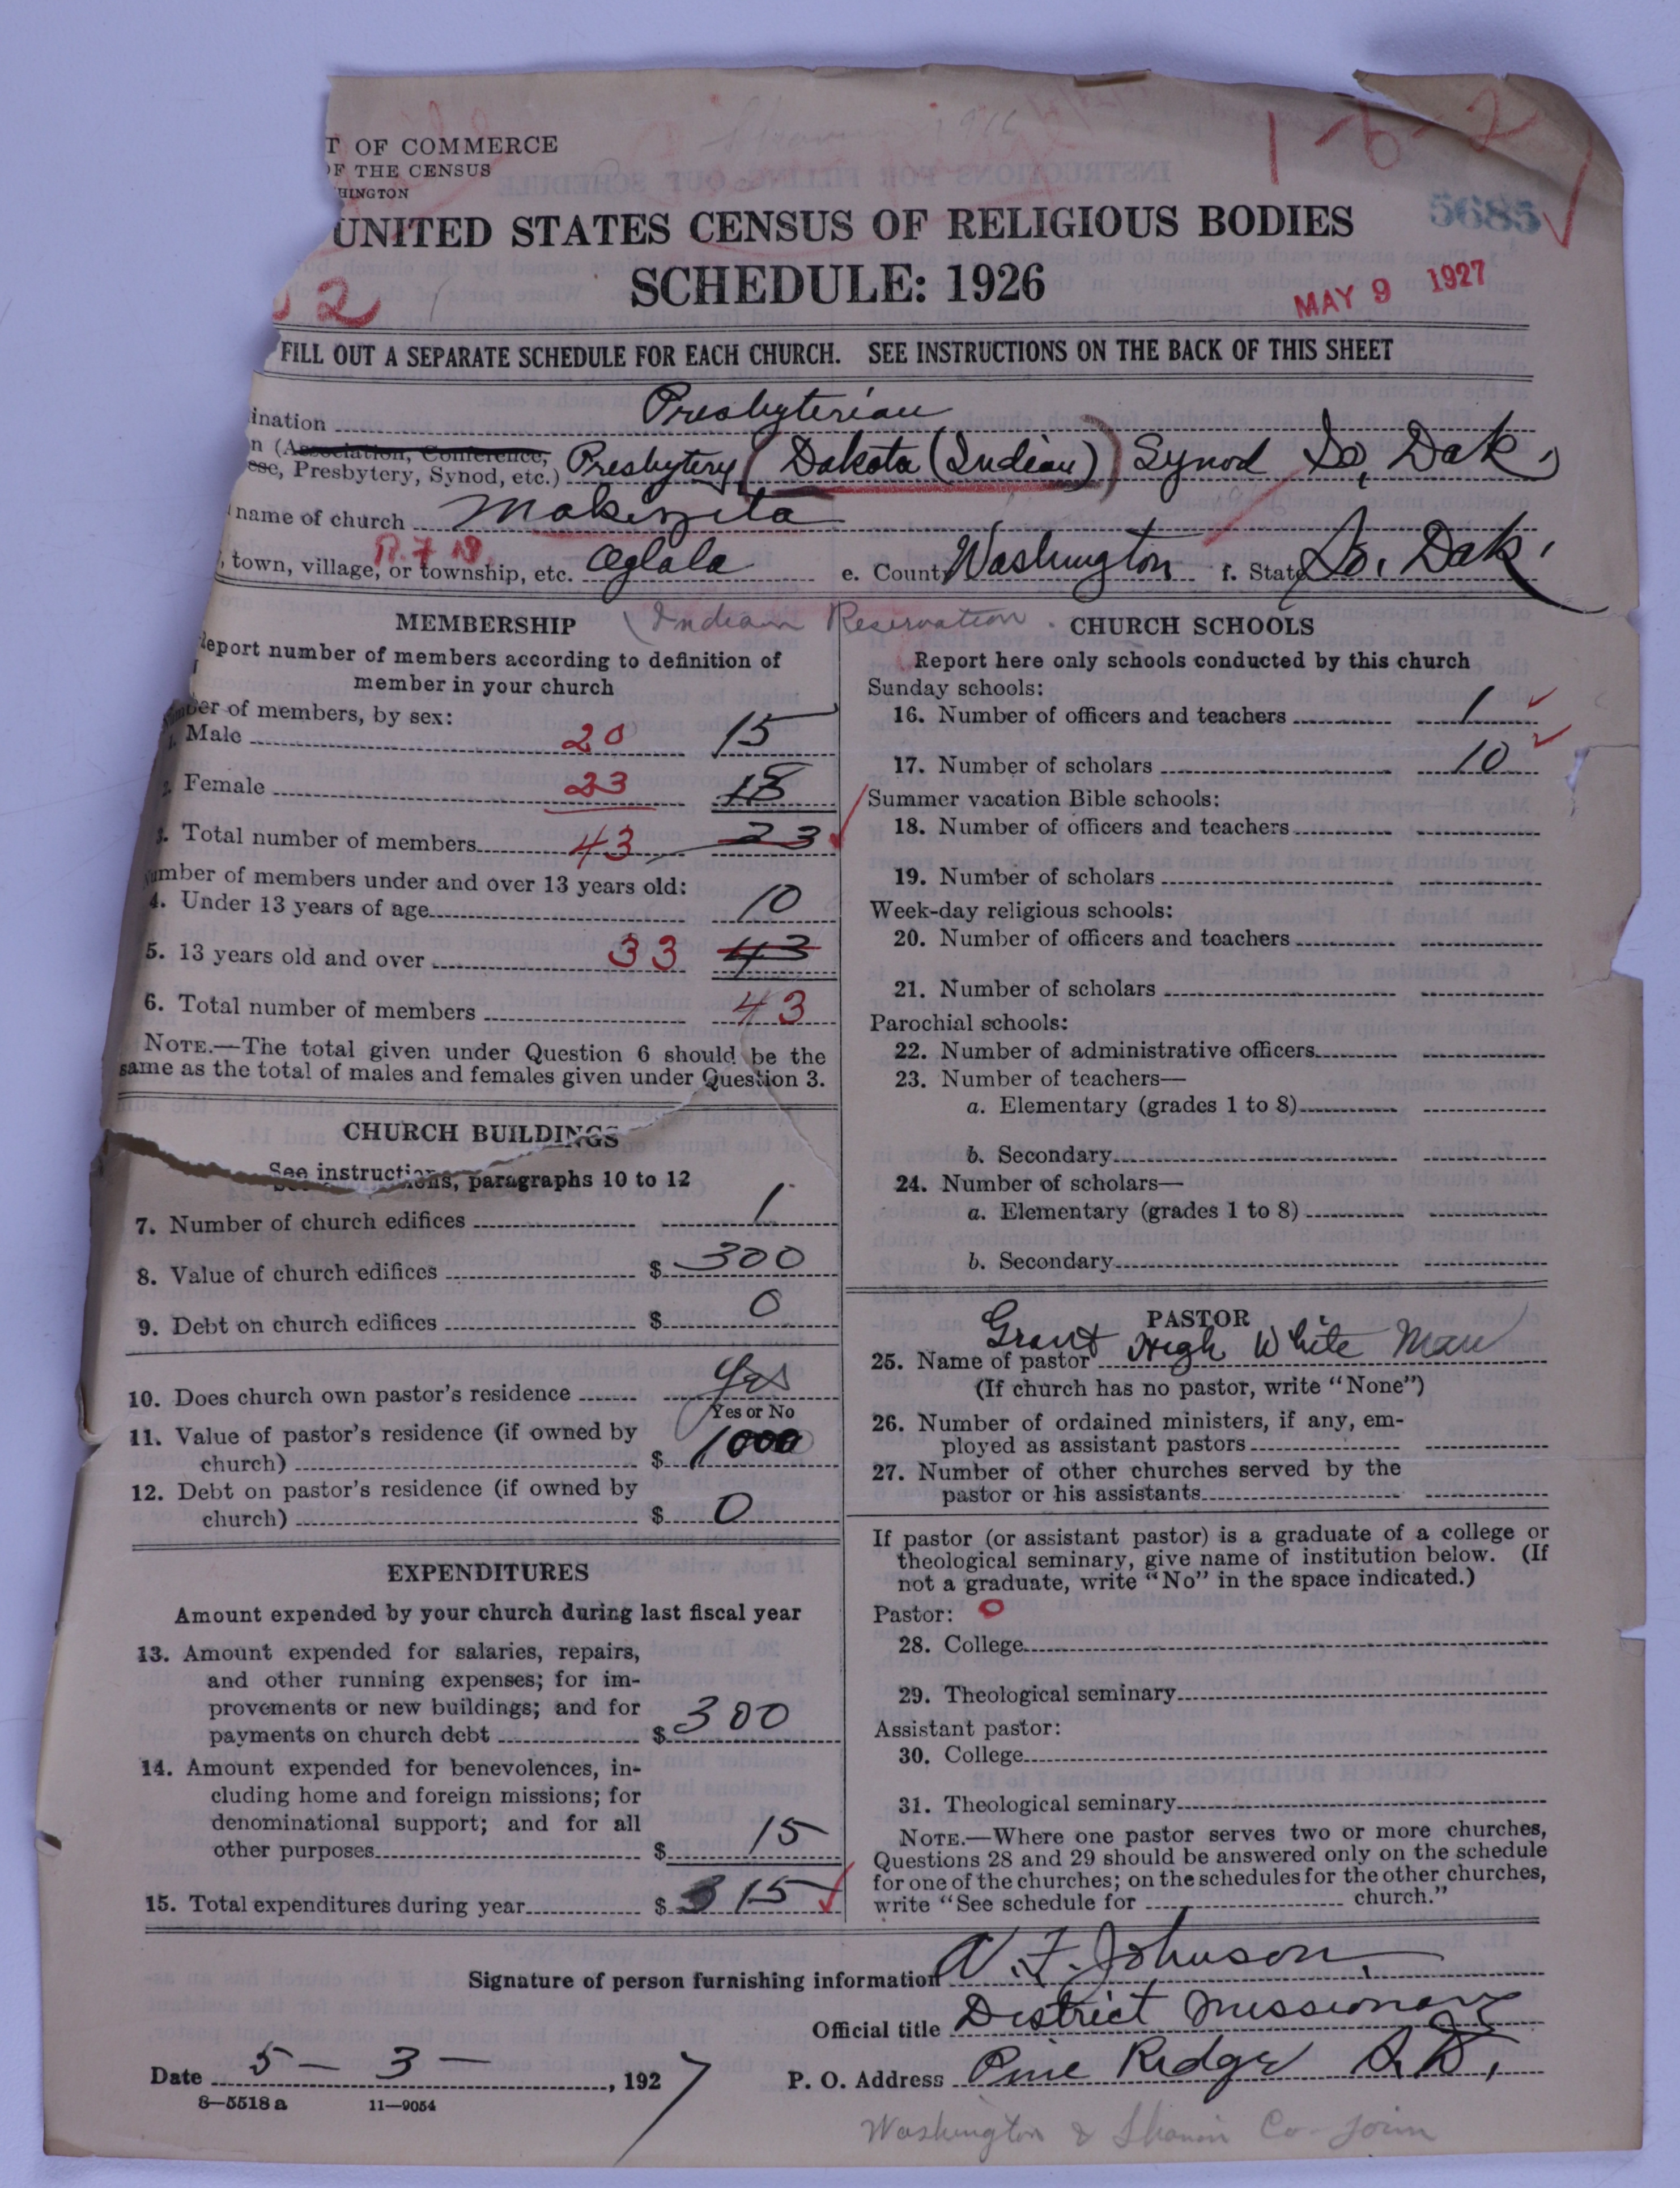 T OF COMMERCE
OF THE CENSUS
HINGTON
1-6-2
5685
UNITED STATES CENSUS OF RELIGIOUS BODIES
SCHEDULE: 1926
MAY 9 1927
2
FILL OUT A SEPARATE SCHEDULE FOR EACH CHURCH. SEE INSTRUCTIONS ON THE BACK OF THIS SHEET
ination Presbyterian
n (Association, Conference,
ese, Presbytery, Synod, etc.) Presbytery (Dakota (Indian)) Synod So. Dak.
name of church Makizita
, town, village, or township, etc. Oglala e. County Washington f. State So. Dak.
R.F.D.
(Indian Reservation.
MEMBERSHIP
Report number of members according to definition of
member in your church
Number of members, by sex:
1. Male 20 15
2. Female 23 18
3. Total number of members 43 23
Number of members under and over 13 years old:
4. Under 13 years of age 10
5. 13 years old and over 33 43
6. Total number of members 43
NOTE.—The total given under Question 6 should be the
same as the total of males and females given under Question 3.
CHURCH BUILDINGS
See instructions, paragraphs 10 to 12
7. Number of church edifices 1
8. Value of church edifices $ 300
9. Debt on church edifices $ 0
10. Does church own pastor's residence Yes
Yes or No
11. Value of pastor's residence (if owned by
church) $ 1000
12. Debt on pastor's residence (if owned by
church) $ 0
EXPENDITURES
Amount expended by your church during last fiscal year
13. Amount expended for salaries, repairs,
and other running expenses; for im-
provements or new buildings; and for
payments on church debt $ 300
14. Amount expended for benevolences, in-
cluding home and foreign missions; for
denominational support; and for all
other purposes $ 15
15. Total expenditures during year $ 315
CHURCH SCHOOLS
Report here only schools conducted by this church
Sunday schools:
16. Number of officers and teachers 1
17. Number of scholars 10
Summer vacation Bible schools:
18. Number of officers and teachers
19. Number of scholars
Week-day religious schools:
20. Number of officers and teachers
21. Number of scholars
Parochial schools:
22. Number of administrative officers
23. Number of teachers—
a. Elementary (grades 1 to 8)
b. Secondary
24. Number of scholars—
a. Elementary (grades 1 to 8)
b. Secondary
PASTOR
25. Name of pastor Grant High White Man
(If church has no pastor, write "None")
26. Number of ordained ministers, if any, em-
ployed as assistant pastors
27. Number of other churches served by the
pastor or his assistants
If pastor (or assistant pastor) is a graduate of a college or
theological seminary, give name of institution below. (If
not a graduate, write "No" in the space indicated.)
Pastor: 0
28. College
29. Theological seminary
Assistant pastor:
30. College
31. Theological seminary
NOTE.—Where one pastor serves two or more churches,
Questions 28 and 29 should be answered only on the schedule
for one of the churches; on the schedules for the other churches,
write "See schedule for church."
Signature of person furnishing information A. F. Johnson.
Official title District Missionary
Date 5 - 3 - , 1927 P. O. Address Pine Ridge S.D.
8—5518 a 11—9054
Washington & Shannon Co. join